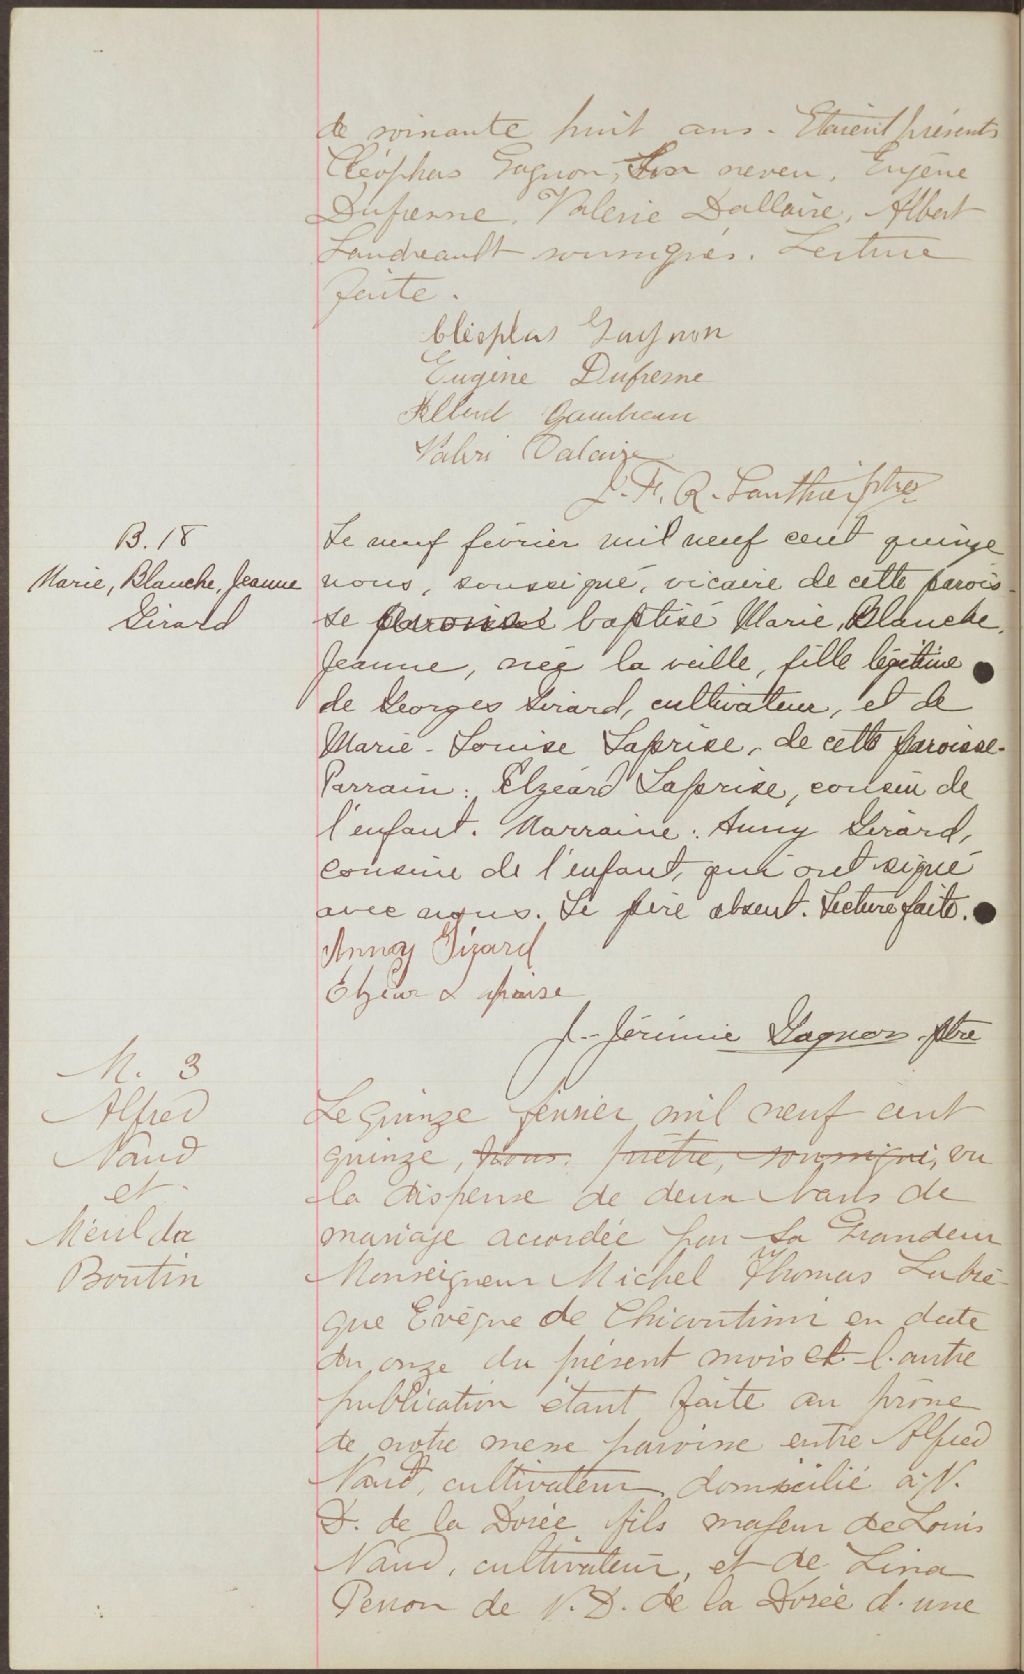 de soixante huit ans. Etaient présents
Cléophas Gagnon, Son neveu, Eugène
Dufresne, Valerie Dallaire, Albert
Gaudreault soussignés. Lecture
faite.
Cléophas Gagnon
Eugène Dufresne
Albert Gaudreau
Valéri Dalaire
J. F. R. Gauthier ptre
B. 18
Marie, Blanche, Jeanne
Girard
Le neuf février mil neuf cent quinze
nous, soussigné, vicaire de cette parois-
se paroisse baptisé Marie, Blanche,
Jeanne, née la veille, fille légitime
de Georges Girard, cultivateur, et de
Marie-Louise Laprise, de cette paroisse.
Parrain: Elzéard Laprise, cousin de
l'enfant. Marraine: Anny Girard,
cousine de l'enfant, qui ont signé
avec nous. Le père absent. Lecture faite.
Annay Girard
Elzear Laprise
J.-Jérémie Gagnon ptre
M. 3
Alfred
Naud
et
Mérilda
Boutin
Le quinze février mil neuf cent
quinze, nous, prêtre, soussigné, vu
la dispense de deux bans de
mariage accordée par Sa Grandeur
Monseigneur Michel Thomas Labrè-
que Evêque de Chicoutimi en date
du onze du présent mois et l'autre
publication étant faite au prône
de notre messe paroisse entre Alfred
Naud, cultivateur, domicilié à N.
D. de la Dorée fils majeur de Louis
Naud, cultivateur, et de Lina
Perron de N. D. de la Dorée d'une